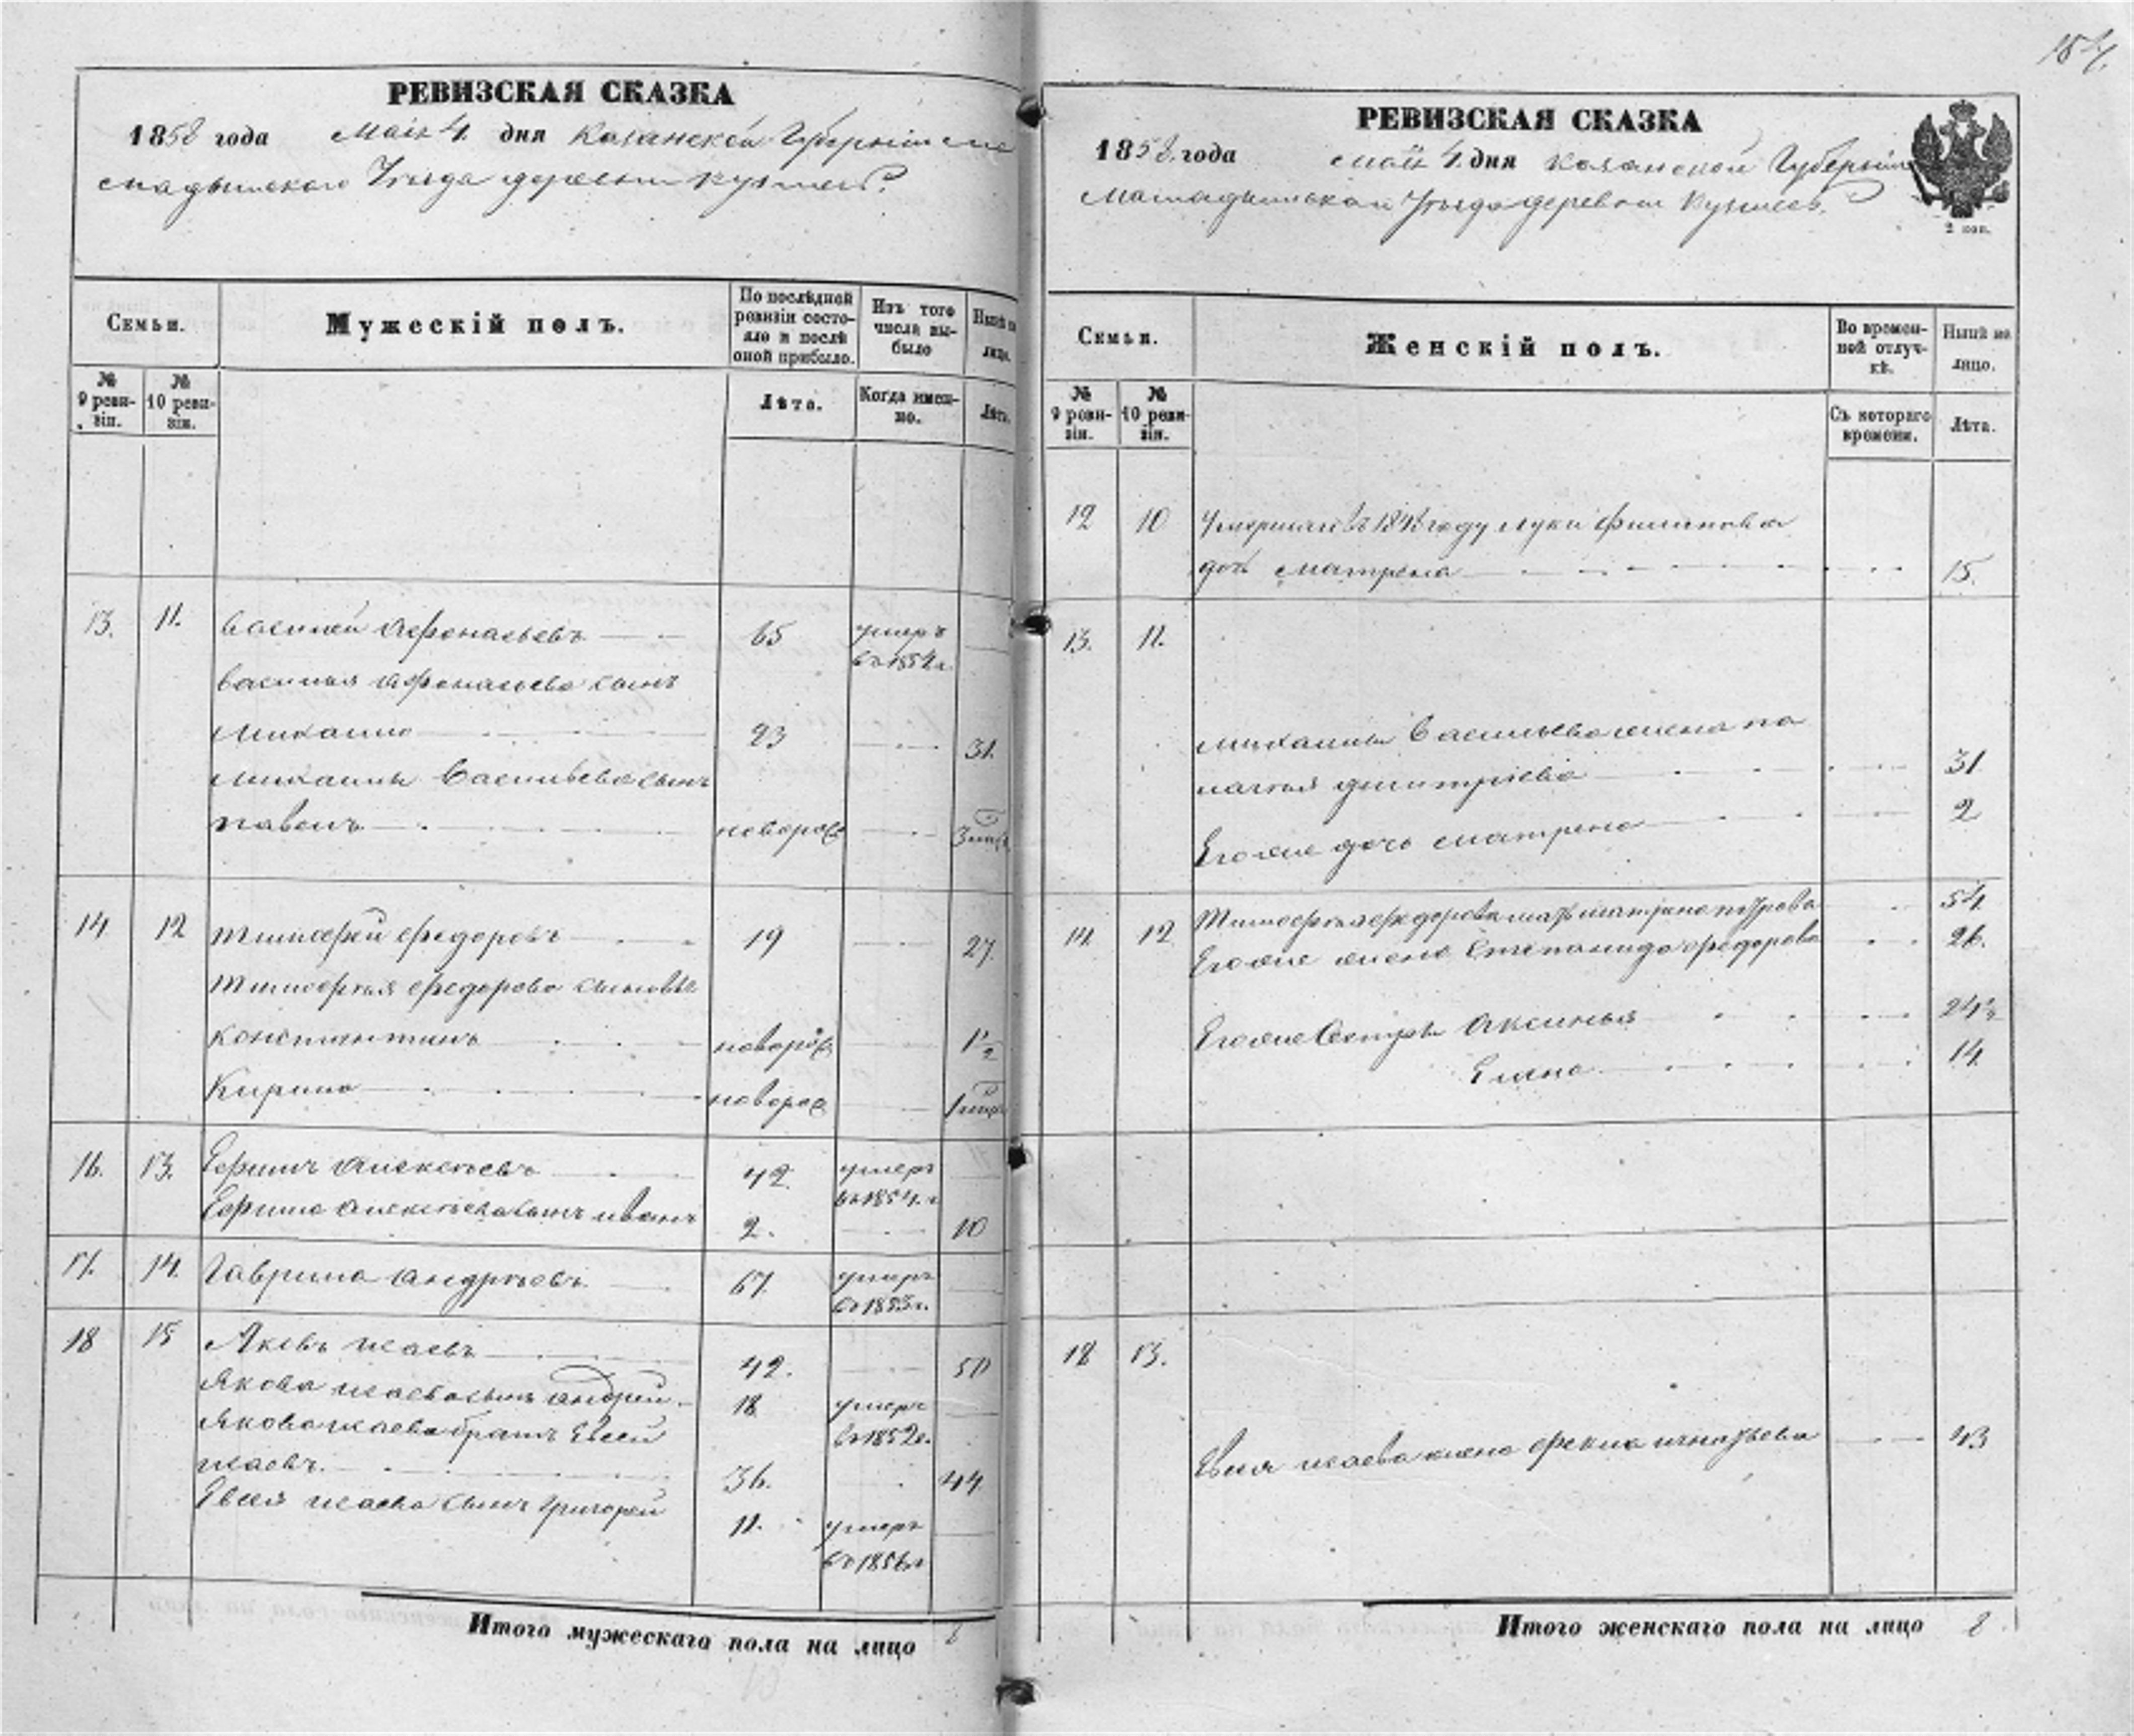 187.
РЕВИЗСКАЯ СКАЗКА
1858 года Мая 4. дня Казанской Губернии
мадышскаго Уезда деревни
Семьи.
Мужескій полъ.
По послѣдней ревизіи состояло и послѣ оной прибыло.
Изъ того числа выбыло
Нынѣ на лицо.
№ 9 ревизіи.
№ 10 ревизіи.
Лѣта.
Когда именно.
Лѣта.
13. 11. Василей Афонасьевъ 65 умеръ
въ 1854г.
Василья Афонасьева сынъ
Михаило 23 31.
Михаилы Васильева сынъ
Павелъ новорож
14 12 Тимофей Федоровъ 19 27.
Тимофея Федорова сыновья
Константинъ новорож 1½
Кирило новорож
16. 13. Ефимъ Алексеевъ 42. умеръ
въ 1854.г
Ефима Алексеева сынъ Иванъ 2. 10
17. 14. Гаврила Андреевъ 67. умеръ
въ 1853г.
18 15 Яковъ Исаевъ 42. 50
Якова Исаева сынъ Андрей 18 умеръ
въ 1852г.
Якова Исаева братъ Евсей
Исаевъ. 36. 44
Евсея Исаева сынъ Григорей 11. умеръ
въ 1856г
Итого мужескаго пола на лицо
РЕВИЗСКАЯ СКАЗКА
1858. года Мая 4. дня Казанской Губернии
Мамадышскаго Уезда деревни
2 коп.
Семьи.
Женскій полъ.
Во временной отлучкѣ.
Нынѣ на лицо.
№ 9 ревизіи.
№ 10 ревизіи.
Съ котораго времени.
Лѣта.
12 10 Умершаго въ году Луки Филипова
дочь Матрена 15.
13. 11.
Михаилы Васильева жена
Дмитріева 31
Его же дочь Матрена 2
14. 12. Тимофея Федорова мать Матрена Петрова 54
Его же жена Степанида Федорова 26.
Его же сестры Аксинья 24½
Елена 14
18 13.
Евсея Исаева жена Фекла Игнатьева 43
Итого женскаго пола на лицо 8.